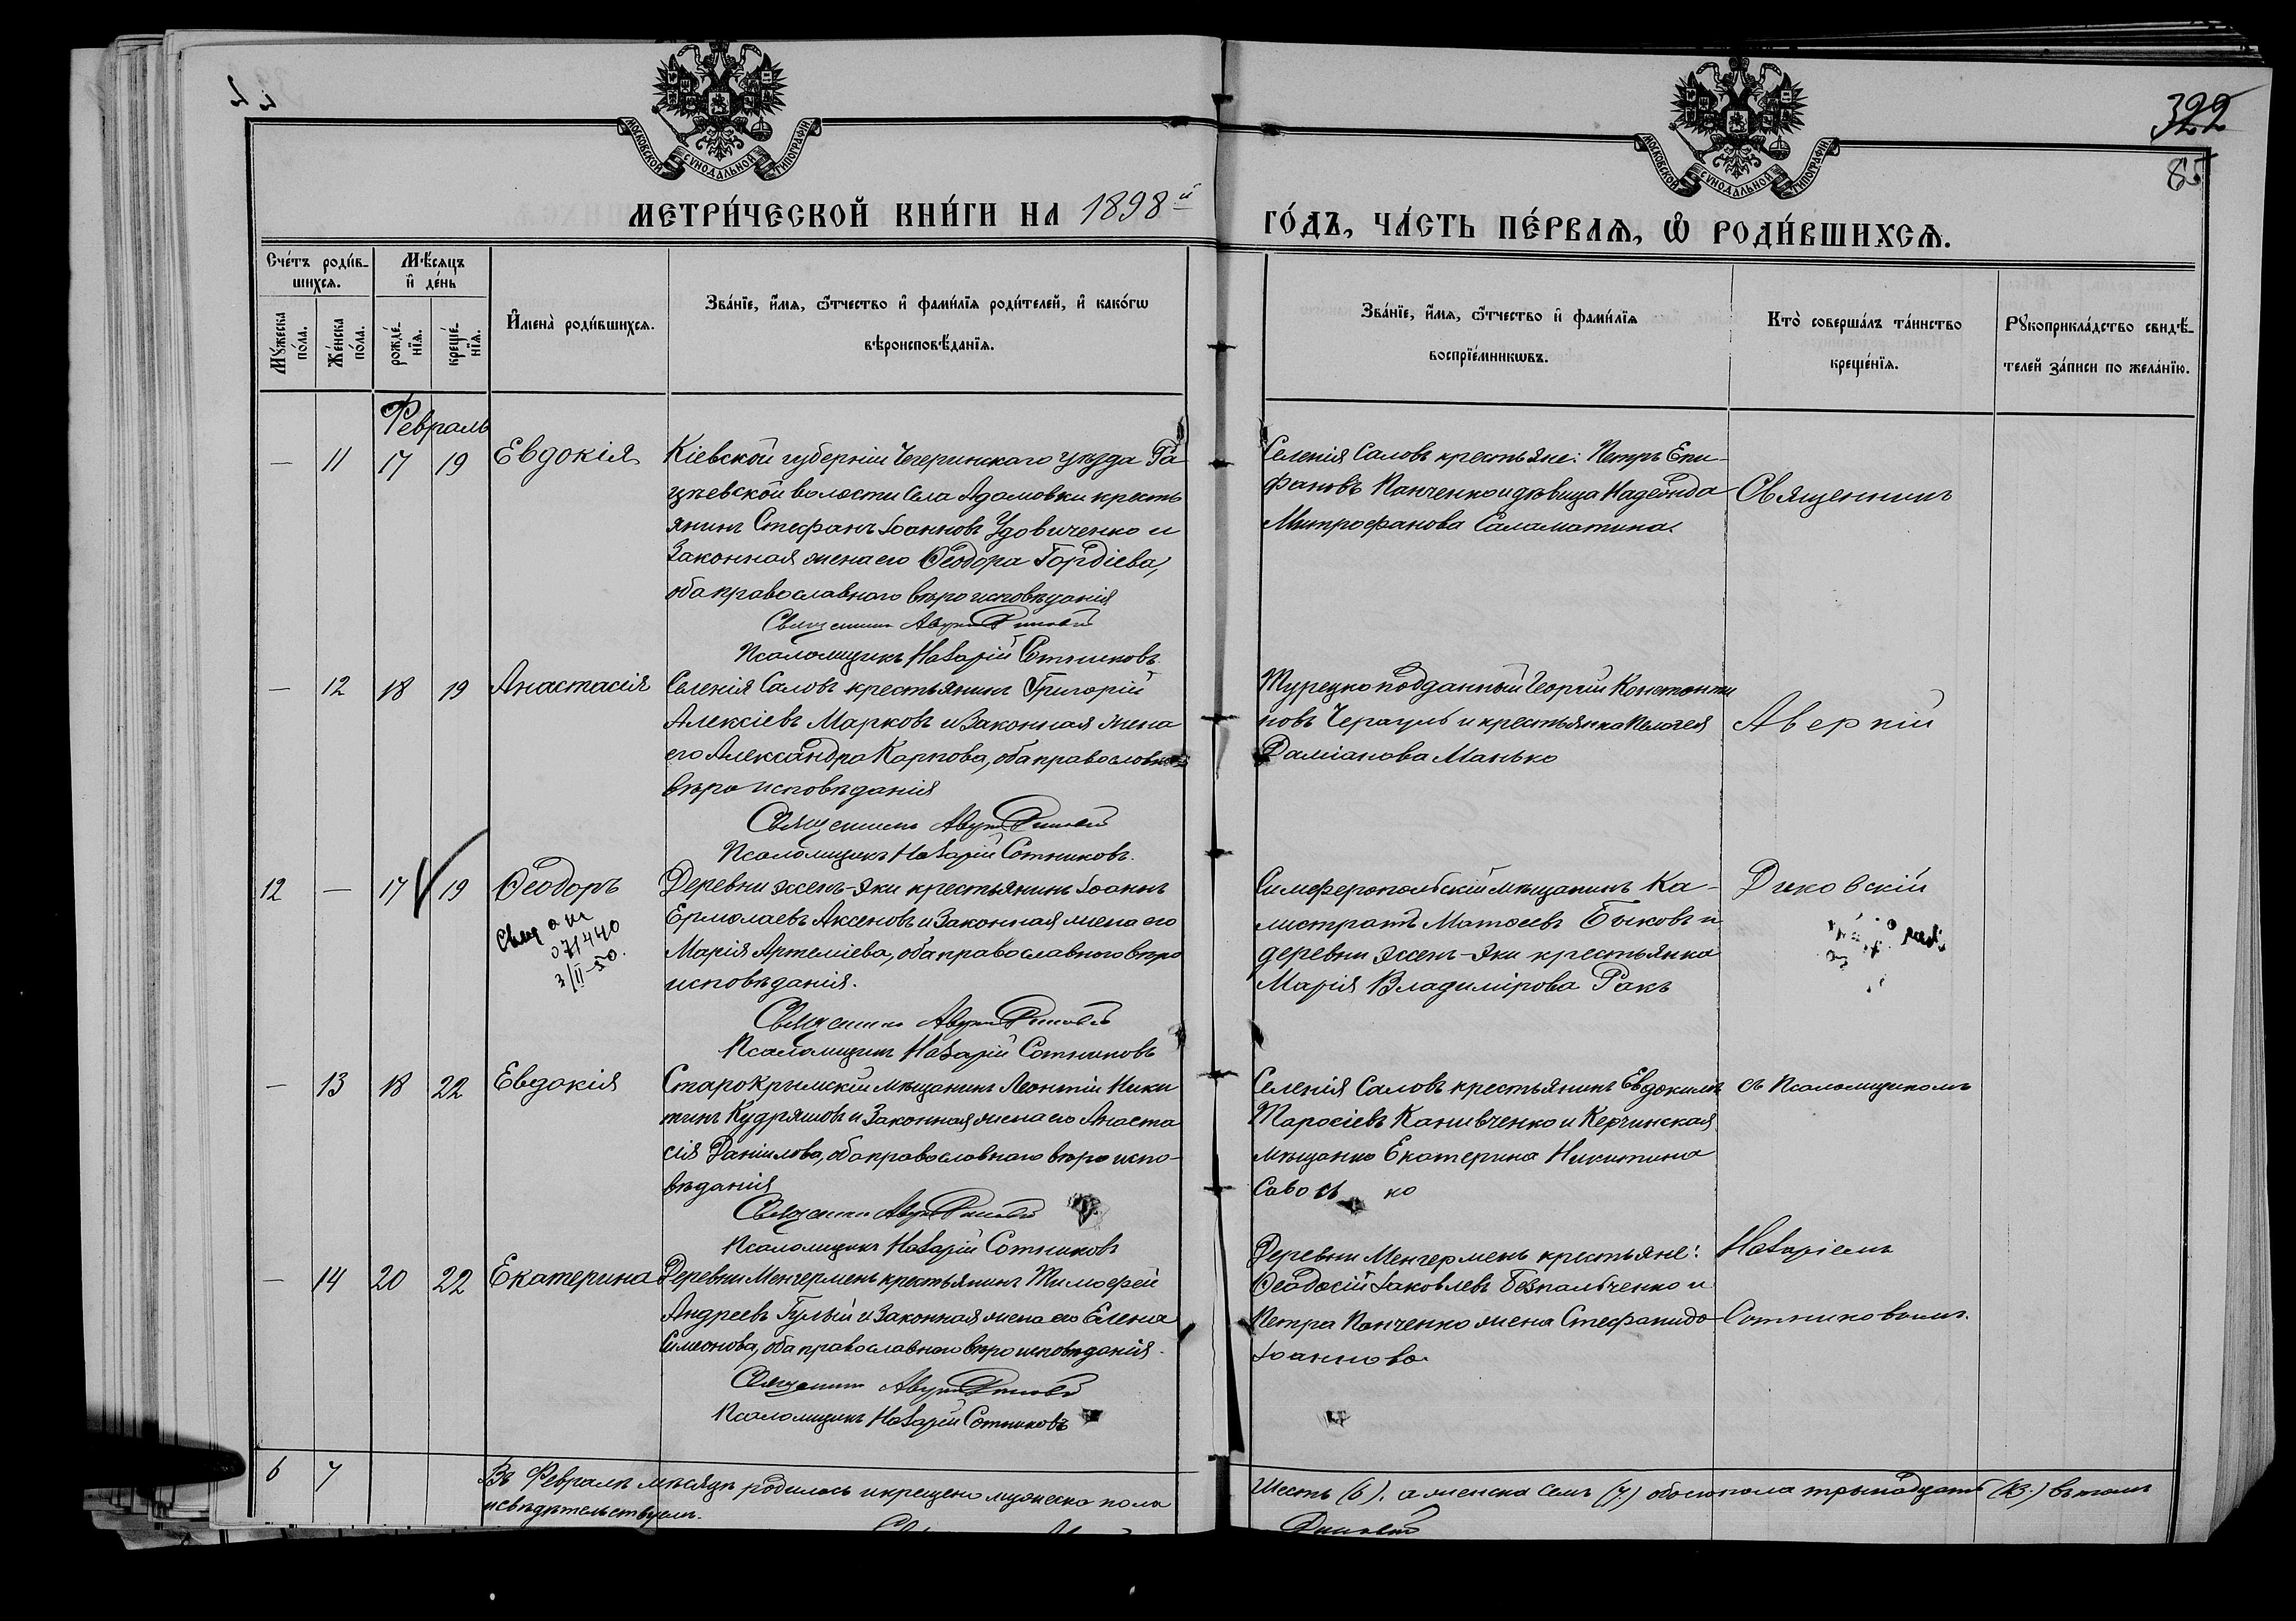 322
85
МОСКОВСКОЙ СѴНОДАЛЬНОЙ ТИПОГРАФІИ
МОСКОВСКОЙ СѴНОДАЛЬНОЙ ТИПОГРАФІИ
МЕТРИ́ЧЕСКОЙ КНИ́ГИ НА 1898й
ГО́ДЪ, ЧА́СТЬ ПЕ́РВАѦ, Ѽ РОДИ́ВШИХСѦ.
Сче́тъ роди́в-
шихсѧ.
Мꙋ́жеска по́ла.
Же́нска по́ла.
Мѣ́сѧцъ
и҆ де́нь
рожде́нїѧ.
креще́нїѧ.
И҆мена̀ роди́вшихсѧ.
Зва́нїе, и҆́мѧ, ѻ҆́тчество и҆ фами́лїѧ роди́телей, и҆ како́гѡ
вѣроисповѣ́данїѧ.
Зва́нїе, и҆́мѧ, ѻ҆́тчество и҆ фами́лїѧ
воспрїе́мникѡвъ.
Кто̀ соверша́лъ та́инство
креще́нїѧ.
Рꙋкоприкла́дство свидѣ́-
телей за́писи по жела́нїю.
Февраль
— 11 17 19 Евдокія
Кіевской губерніи Чегеринскаго уѣзда Ра
цѣевской волости села Адамовки кресть
янинъ Стефанъ Іоанновъ Удовиченко и
законная жена его Ѳеодора Гордіева,
оба православнаго вѣроисповѣданія
Священникъ
Псаломщикъ Назарій Сотниковъ
Селенія Саловъ крестьяне: Петръ Епи-
фановъ Панченко и дѣвица Надежда
Митрофанова Саламатина.
Священникъ
— 12 18 19 Анастасія
Селенія Саловъ крестьянинъ Григорій
Алексіевъ Марковъ и законная жена
его Александра Карпова, оба православнаго
вѣроисповѣданія
Священникъ
Псаломщикъ Назарій Сотниковъ.
Турецкоподданный Георгій Константи
новъ и крестьянка Пелагея
Даміанова Манько
Аверкій
12 — 17 19 Ѳеодоръ
071440
3/II-50.
Деревни Джепъ-Яки крестьянинъ Іоаннъ
Ермолаевъ Аксеновъ и законная жена его
Марія Артеміева, оба православнаго вѣро
исповѣданія.
Священникъ
Псаломщикъ Назарій Сотниковъ
Симферопольскій мѣщанинъ Ка-
листратъ Матѳеевъ Быковъ и
деревни крестьянка
Марія Владимірова Ракъ
Диковскій
— 13 18 22 Евдокія
Старокрымскій мѣщанинъ Леонтій Ники
тинъ Кудряшовъ и законная жена его Анаста
сія Даніилова, оба православнаго вѣроиспо-
вѣданія
Священникъ
Псаломщикъ Назарій Сотниковъ
Селенія Саловъ крестьянинъ Евдокимъ
Тарасіевъ Канивченко и Керчинская
мѣщанка Екатерина Никитина
съ Псаломщикомъ
— 14 20 22 Екатерина
Деревни Менгерменъ крестьянинъ Тимоѳей
Андреевъ Гулый и законная жена его Елена
Симеонова, оба православнаго вѣроисповѣданія.
Священникъ
Псаломщикъ Назарій Сотниковъ
Деревни Менгерменъ крестьяне:
Ѳеодосій Іаковлевъ Безпальченко и
Петра Панченко жена Стефанида
Іоаннова
Назаріемъ
Сотниковымъ.
6 7 Въ Февралѣ мѣсяцѣ родилось и крещено мужеска пола
Шесть (6), а женска семь (7) обоего пола тринадцать (13) въ томъ
и свидѣтельствуемъ.